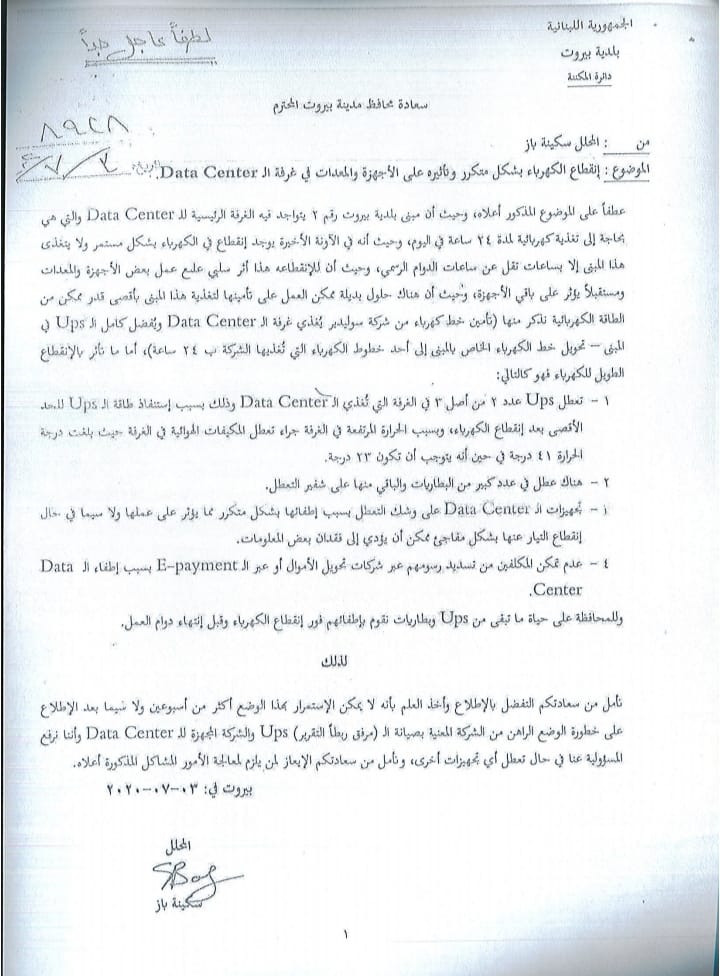 الجمهورية اللبنانية
بلدية بيروت
دائرة المكننة
لطفاً عاجل جداً
سعادة محافظ مدينة بيروت المحترم
٨٩٢٨
من : المحلل سكينة باز
الموضوع : إنقطاع الكهرباء بشكل متكرر وتأثيره على الأجهزة والمعدات في غرفة الـ Data Center.
عطفاً على الموضوع المذكور أعلاه، وحيث أن مبنى بلدية بيروت رقم ٢ يتواجد فيه الغرفة الرئيسية للـ Data Center والتي هي
بحاجة إلى تغذية كهربائية لمدة ٢٤ ساعة في اليوم، وحيث أنه في الآونة الأخيرة يوجد إنقطاع في الكهرباء بشكل مستمر ولا يتغذى
هذا المبنى إلا بساعات تقل عن ساعات الدوام الرسمي، وحيث أن للإنقطاعه هذا أثر سلبي على عمل بعض الأجهزة والمعدات
ومستقبلاً يؤثر على باقي الأجهزة، وحيث أن هناك حلول بديلة ممكن العمل على تأمينها لتغذية هذا المبنى بأقصى قدر ممكن من
الطاقة الكهربائية نذكر منها (تأمين خط كهرباء من شركة سوليدير يُغذي غرفة الـ Data Center ويُفضل كامل الـ Ups في
المبنى – تحويل خط الكهرباء الخاص بالمبنى إلى أحد خطوط الكهرباء التي تُغذيها الشركة ب ٢٤ ساعة)، أما ما تأثر بالإنقطاع
الطويل للكهرباء فهو كالتالي:
١ - تعطل Ups عدد ٢ من أصل ٣ في الغرفة التي تُغذي الـ Data Center وذلك بسبب إستنفاذ طاقة الـ Ups للحد
الأقصى بعد إنقطاع الكهرباء، وبسبب الحرارة المرتفعة في الغرفة جراء تعطل المكيفات الهوائية في الغرفة حيث بلغت درجة
الحرارة ٤١ درجة في حين أنه يتوجب أن تكون ٢٣ درجة.
٢ - هناك عطل في عدد كبير من البطاريات والباقي منها على شفير التعطل.
- تجهيزات الـ Data Center على وشك التعطل بسبب إطفائها بشكل متكرر مما يؤثر على عملها ولا سيما في حال
إنقطاع التيار عنها بشكل مفاجئ ممكن أن يؤدي إلى فقدان بعض المعلومات.
٤ - عدم تمكن المكلفين من تسديد رسومهم عبر شركات تحويل الأموال أو عبر الـ E-payment بسبب إطفاء الـ Data
Center.
وللمحافظة على حياة ما تبقى من Ups وبطاريات نقوم بإطفائهم فور إنقطاع الكهرباء وقبل إنتهاء دوام العمل.
لذلك
نأمل من سعادتكم التفضل بالإطلاع وأخذ العلم بأنه لا يمكن الإستمرار بهذا الوضع أكثر من أسبوعين ولا سيما بعد الإطلاع
على خطورة الوضع الراهن من الشركة المعنية بصيانة الـ (مرفق ربطاً التقرير) Ups والشركة المجهزة للـ Data Center وأننا نرفع
المسؤولية عنا في حال تعطل أي تجهيزات أخرى، ونأمل من سعادتكم الإيعاز لمن يلزم لمعالجة الأمور المشاكل المذكورة أعلاه.
بيروت في: ٠٣-٠٧-٢٠٢٠
المحلل
سكينة باز
١